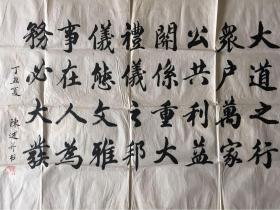 大道之行
衆户萬家
公共利益
關係重大
禮儀之邦
儀態文雅
事在人為
務必大
夏
陳 书